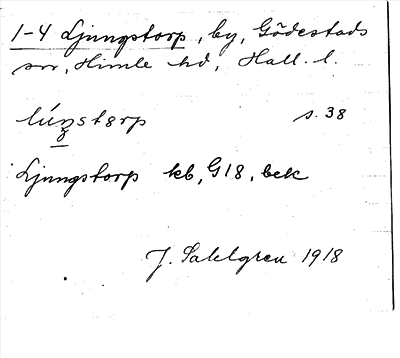 1-4 Ljungstorp, by, Gödestads
sn, Himle hd, Hall. l.
lúŋstərp s. 38
Ljungstorp kb, G18, bek
J. Sahlgren 1918